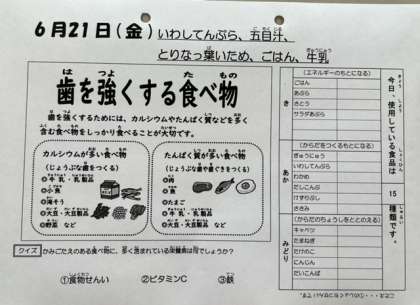 6月21日(金) いわしてんぷら、五目汁、
とりなっ葉いため、ごはん、牛乳
歯を強くする食べ物
歯を強くするためには、カルシウムやたんぱく質などを多く
含む食べ物をしっかり食べることが大切です。
カルシウムが多い食べ物
(じょうぶな歯をつくる)
牛乳・乳製品
小魚
海そう
大豆・大豆製品など
野菜 など
たんぱく質が多い食べ物
(じょうぶな歯や歯ぐきをつくる)
肉
魚
たまご
牛乳・乳製品
大豆・大豆製品 など
クイズ かみごたえのある食べ物に、多く含まれている栄養素は何でしょうか?
①食物せんい ②ビタミンC ③鉄
今日、使用している食品は 15 種類です。
き
(エネルギーのもとになる)
ごはん
あぶら
さとう
サラダあぶら
あか
(からだをつくるもとになる)
ぎゅうにゅう
いわしてんぷら
わかめ
だしこんぶ
けずりぶし
ささみ
みどり
(からだのちょうしをととのえる)
キャベツ
たまねぎ
たけのこ
にんじん
だいこんば